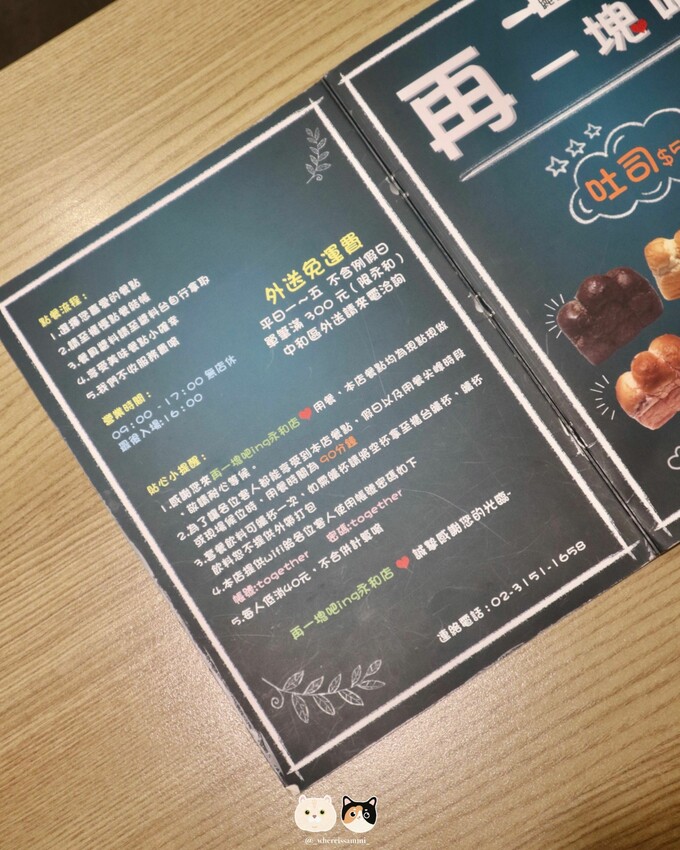 點餐流程：
1.選擇您喜愛的餐點
2.請至櫃檯點餐結帳
3.餐具醬料請至醬料台自行拿取
4.享受美味餐點小確幸
5.我們不收服務費唷
營業時間：
09:00 - 17:00 無店休
最後入場:16:00
外送免運費
平日一～五 不含例假日
單筆滿 300 元 (限永和)
中和區外送請來電洽詢
貼心小提醒：
1.感謝您來再一塊吧ing永和店❤用餐，本店餐點均為現點現做
敬請耐心等候。
2.為了讓各位客人都能享受到本店餐點，假日以及用餐尖峰時段
或現場候位時，用餐時間為 90分鐘
3.套餐飲料可續杯一次，如需續杯請將空杯拿至櫃台續杯，續杯
飲料恕不提供外帶打包
4.本店提供wifi給各位客人使用帳號密碼如下
帳號:together 密碼:together
5.每人低消40元，不合併計算唷
再一塊吧ing永和店 ❤ 誠摯感謝您的光臨~
連絡電話：02-3151-1658
再一塊吧
吐司
@_whereissamini_